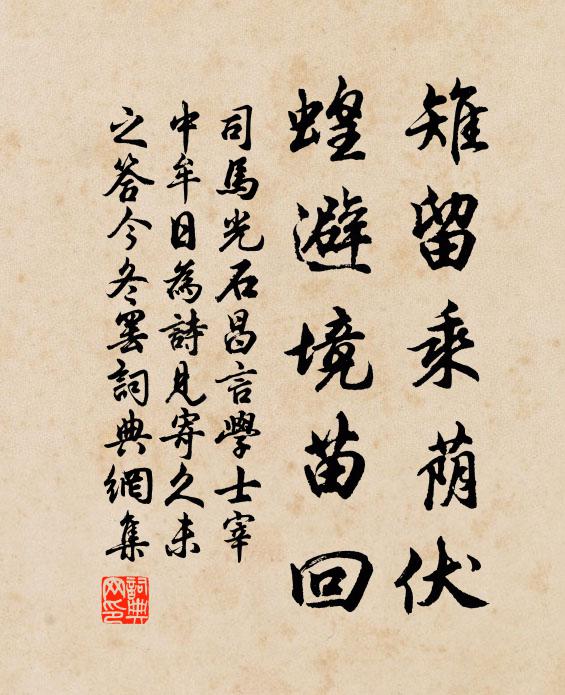 雉留乘荫伏
蝗避境苗回
司馬光石昌言學士宰
中牟日為詩見寄久未
之答今冬罢詞典網集
詞典网印